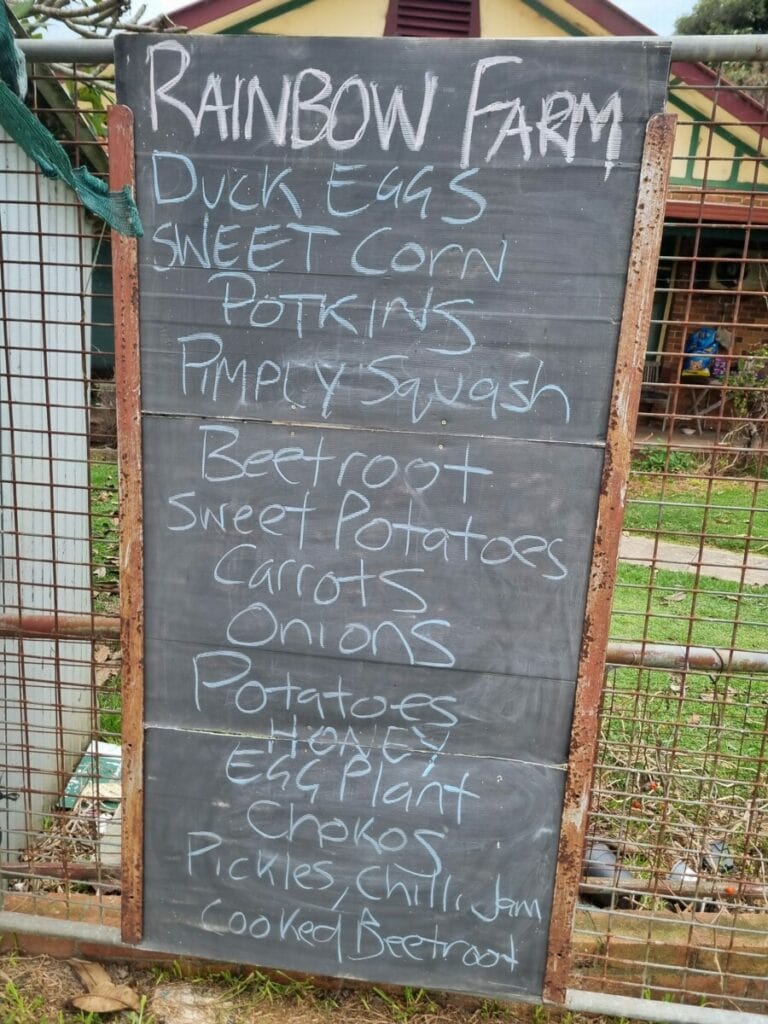 RAINBOW FARM
DUCK EGGS
SWEET CORN
POTKINS
PIMPLY Squash
Beetroot
Sweet Potatoes
Carrots
Onions
Potatoes
HONEY
EGG Plant
Chokos
Pickles, Chilli Jam
Cooked Beetroot